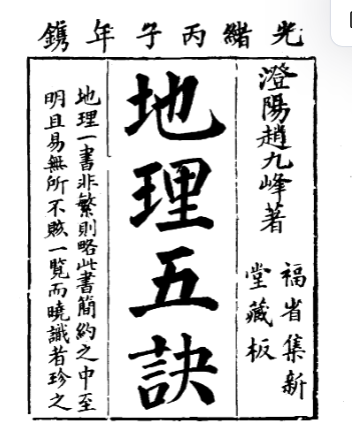 光緒丙子年鐫
澄陽趙九峰著
福省集新
堂藏板
地理五訣
地理一書非繁則略此書簡約之中至
明且易無所不賅一覽而曉識者珍之